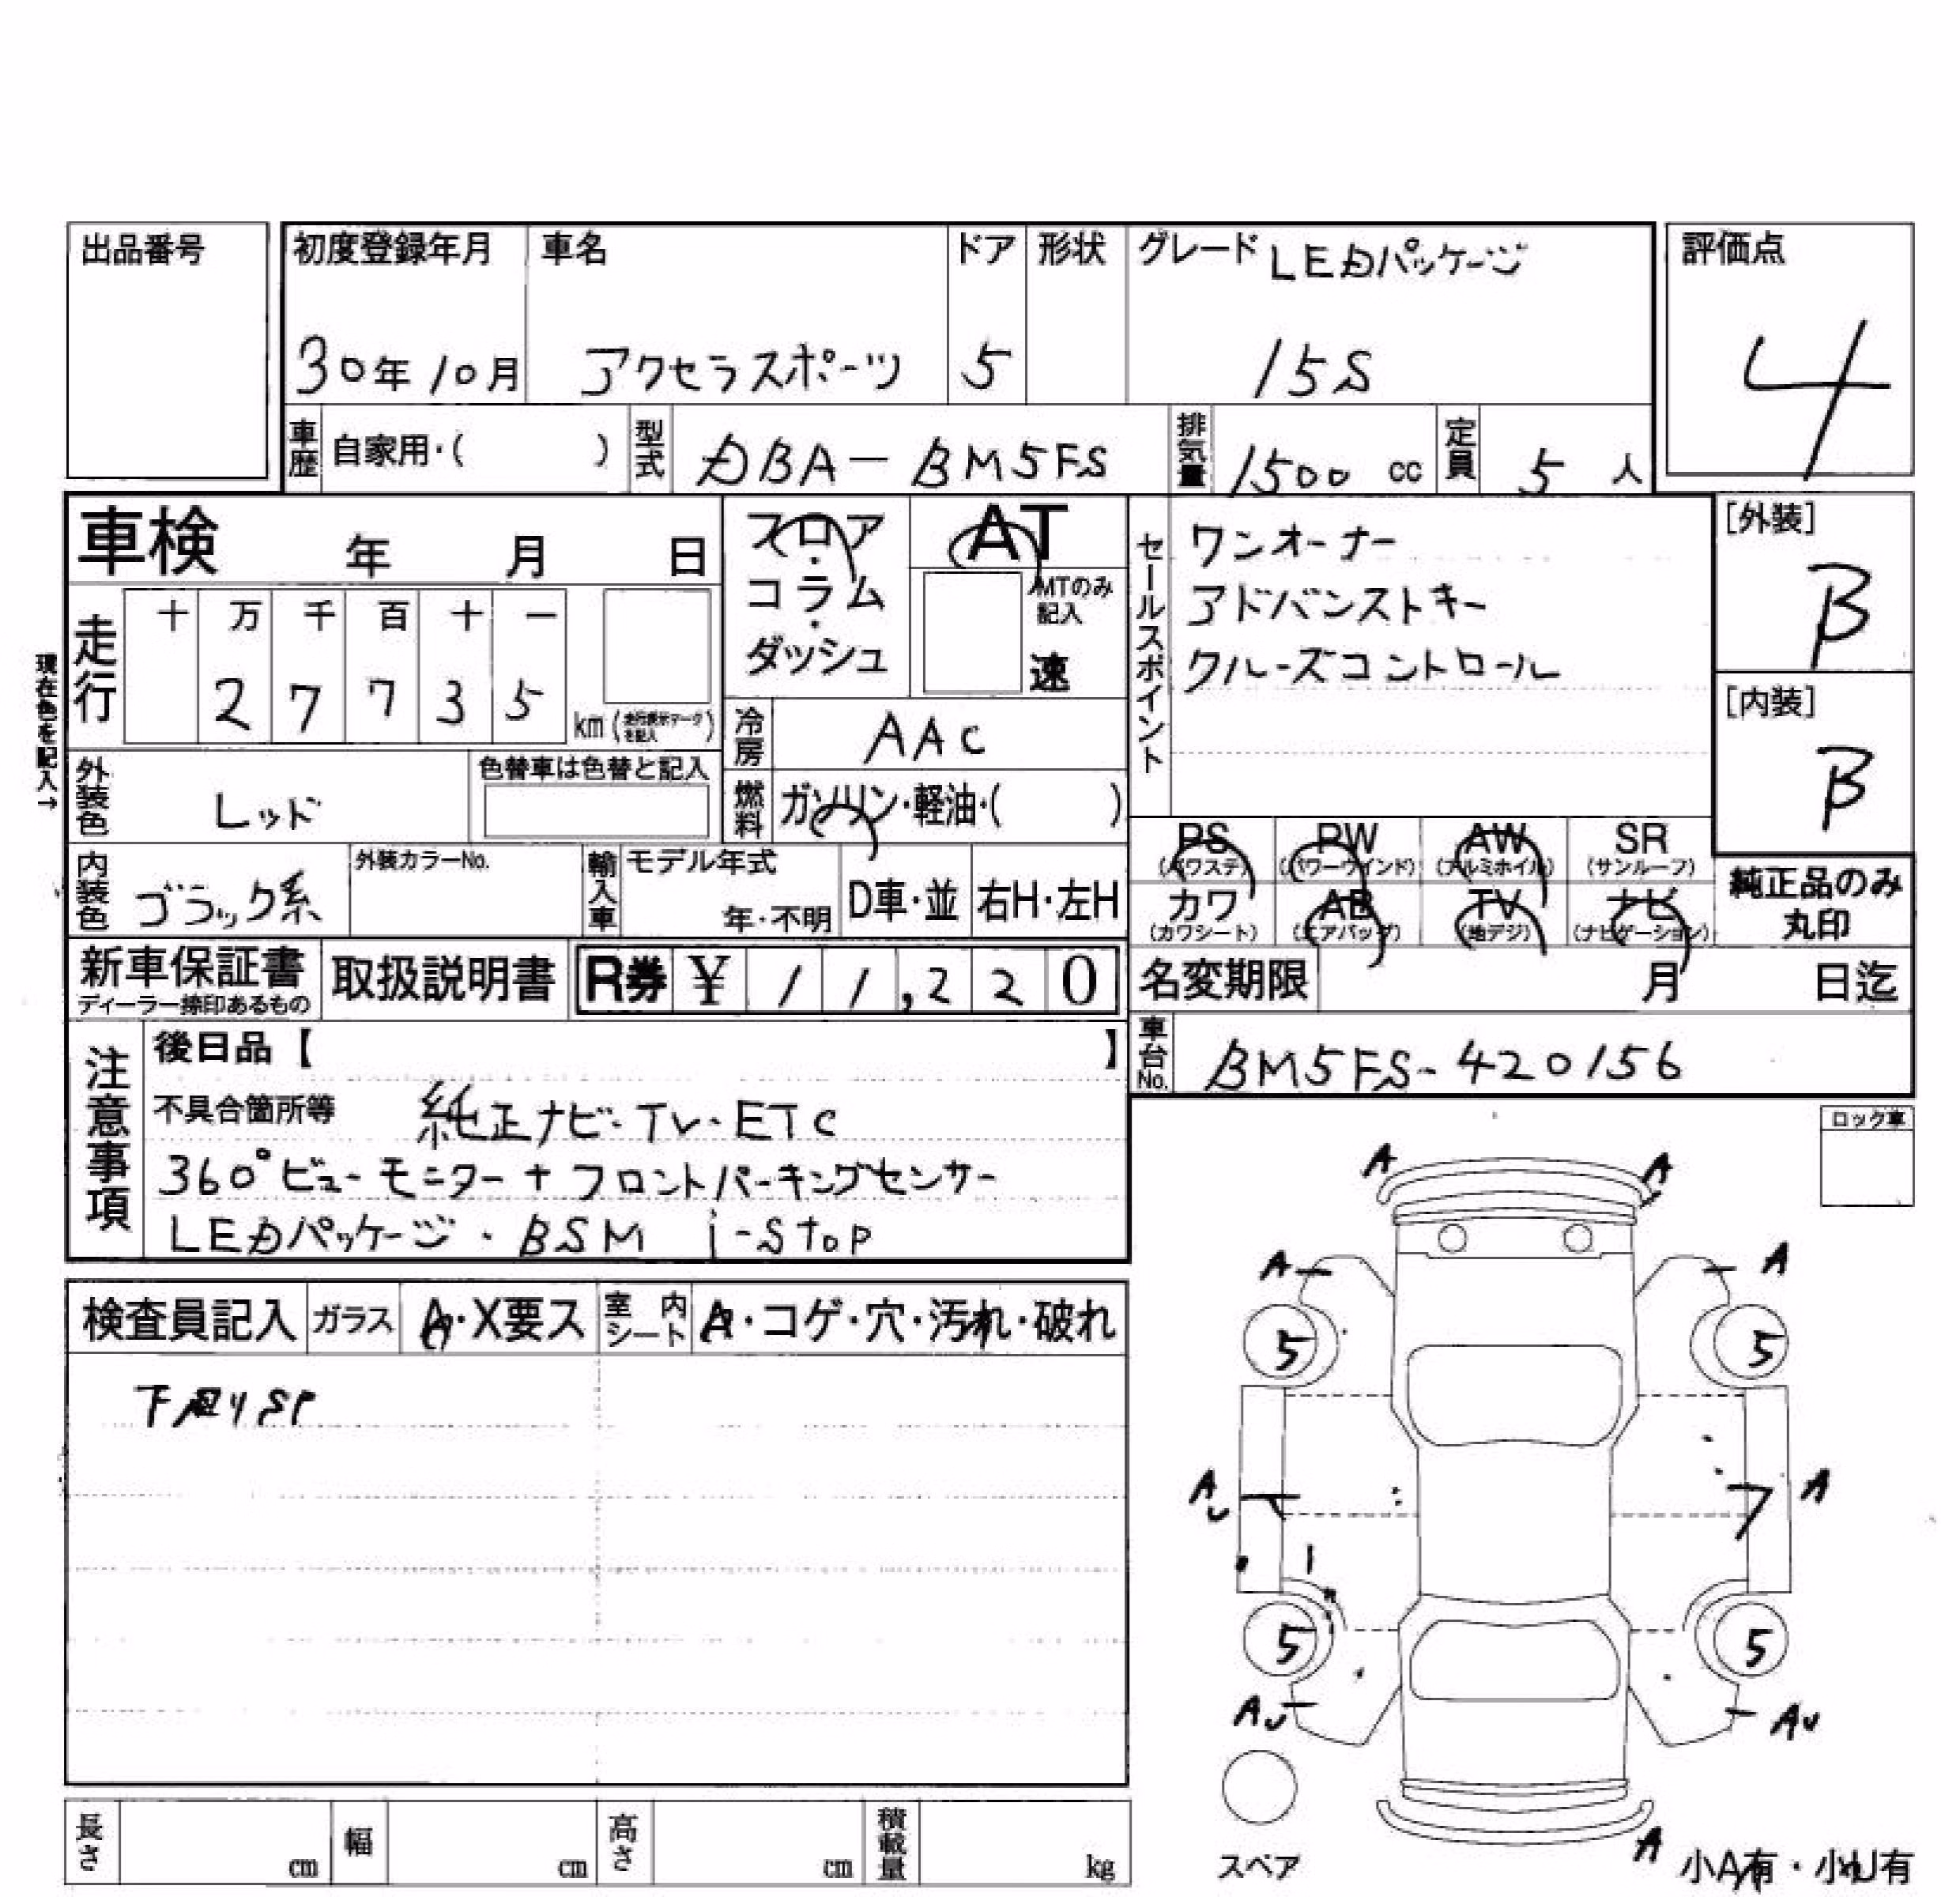 出品番号
初度登録年月 車名 ドア 形状 グレード LEDパッケージ 評価点
30年10月 アクセラスポーツ 5 15S 4
車歴 自家用・( ) 型式 DBA-BM5FS 排気量 1500 cc 定員 5 人
車検 年 月 日
フロア・コラム・ダッシュ
AT
MTのみ記入
速
セールスポイント
ワンオーナー
アドバンストキー
クルーズコントロール
[外装]
B
[内装]
B
現在色を記入→
走行 十 万 千 百 十 一
2 7 7 3 5 km (走行表示マークを記入)
冷房 AAC
外装色 レッド 色替車は色替と記入
燃料 ガソリン・軽油・( )
内装色 ブラック系 外装カラーNo. 輸入車 モデル年式 年・不明 D車・並 右H・左H
PS (パワステ) PW (パワーウインド) AW (アルミホイル) SR (サンルーフ)
カワ (カワシート) AB (エアバッグ) TV (地デジ) ナビ (ナビゲーション)
純正品のみ丸印
新車保証書 ディーラー捺印あるもの 取扱説明書 R券 ¥ 1 1,2 2 0
名変期限 月 日迄
車台No. BM5FS-420156
注意事項
後日品【 】
不具合箇所等 純正ナビ・TV・ETC
360°ビューモニター+フロントパーキングセンサー
LEDパッケージ・BSM i-stop
ロック車
検査員記入 ガラス A・X要ス 室内シート A・コゲ・穴・汚れ・破れ
下廻りSP
A A
A A
5 5
AU A
5 5
AU AU
スペア
A
小A有・小U有
長さ cm 幅 cm 高さ cm 積載量 kg